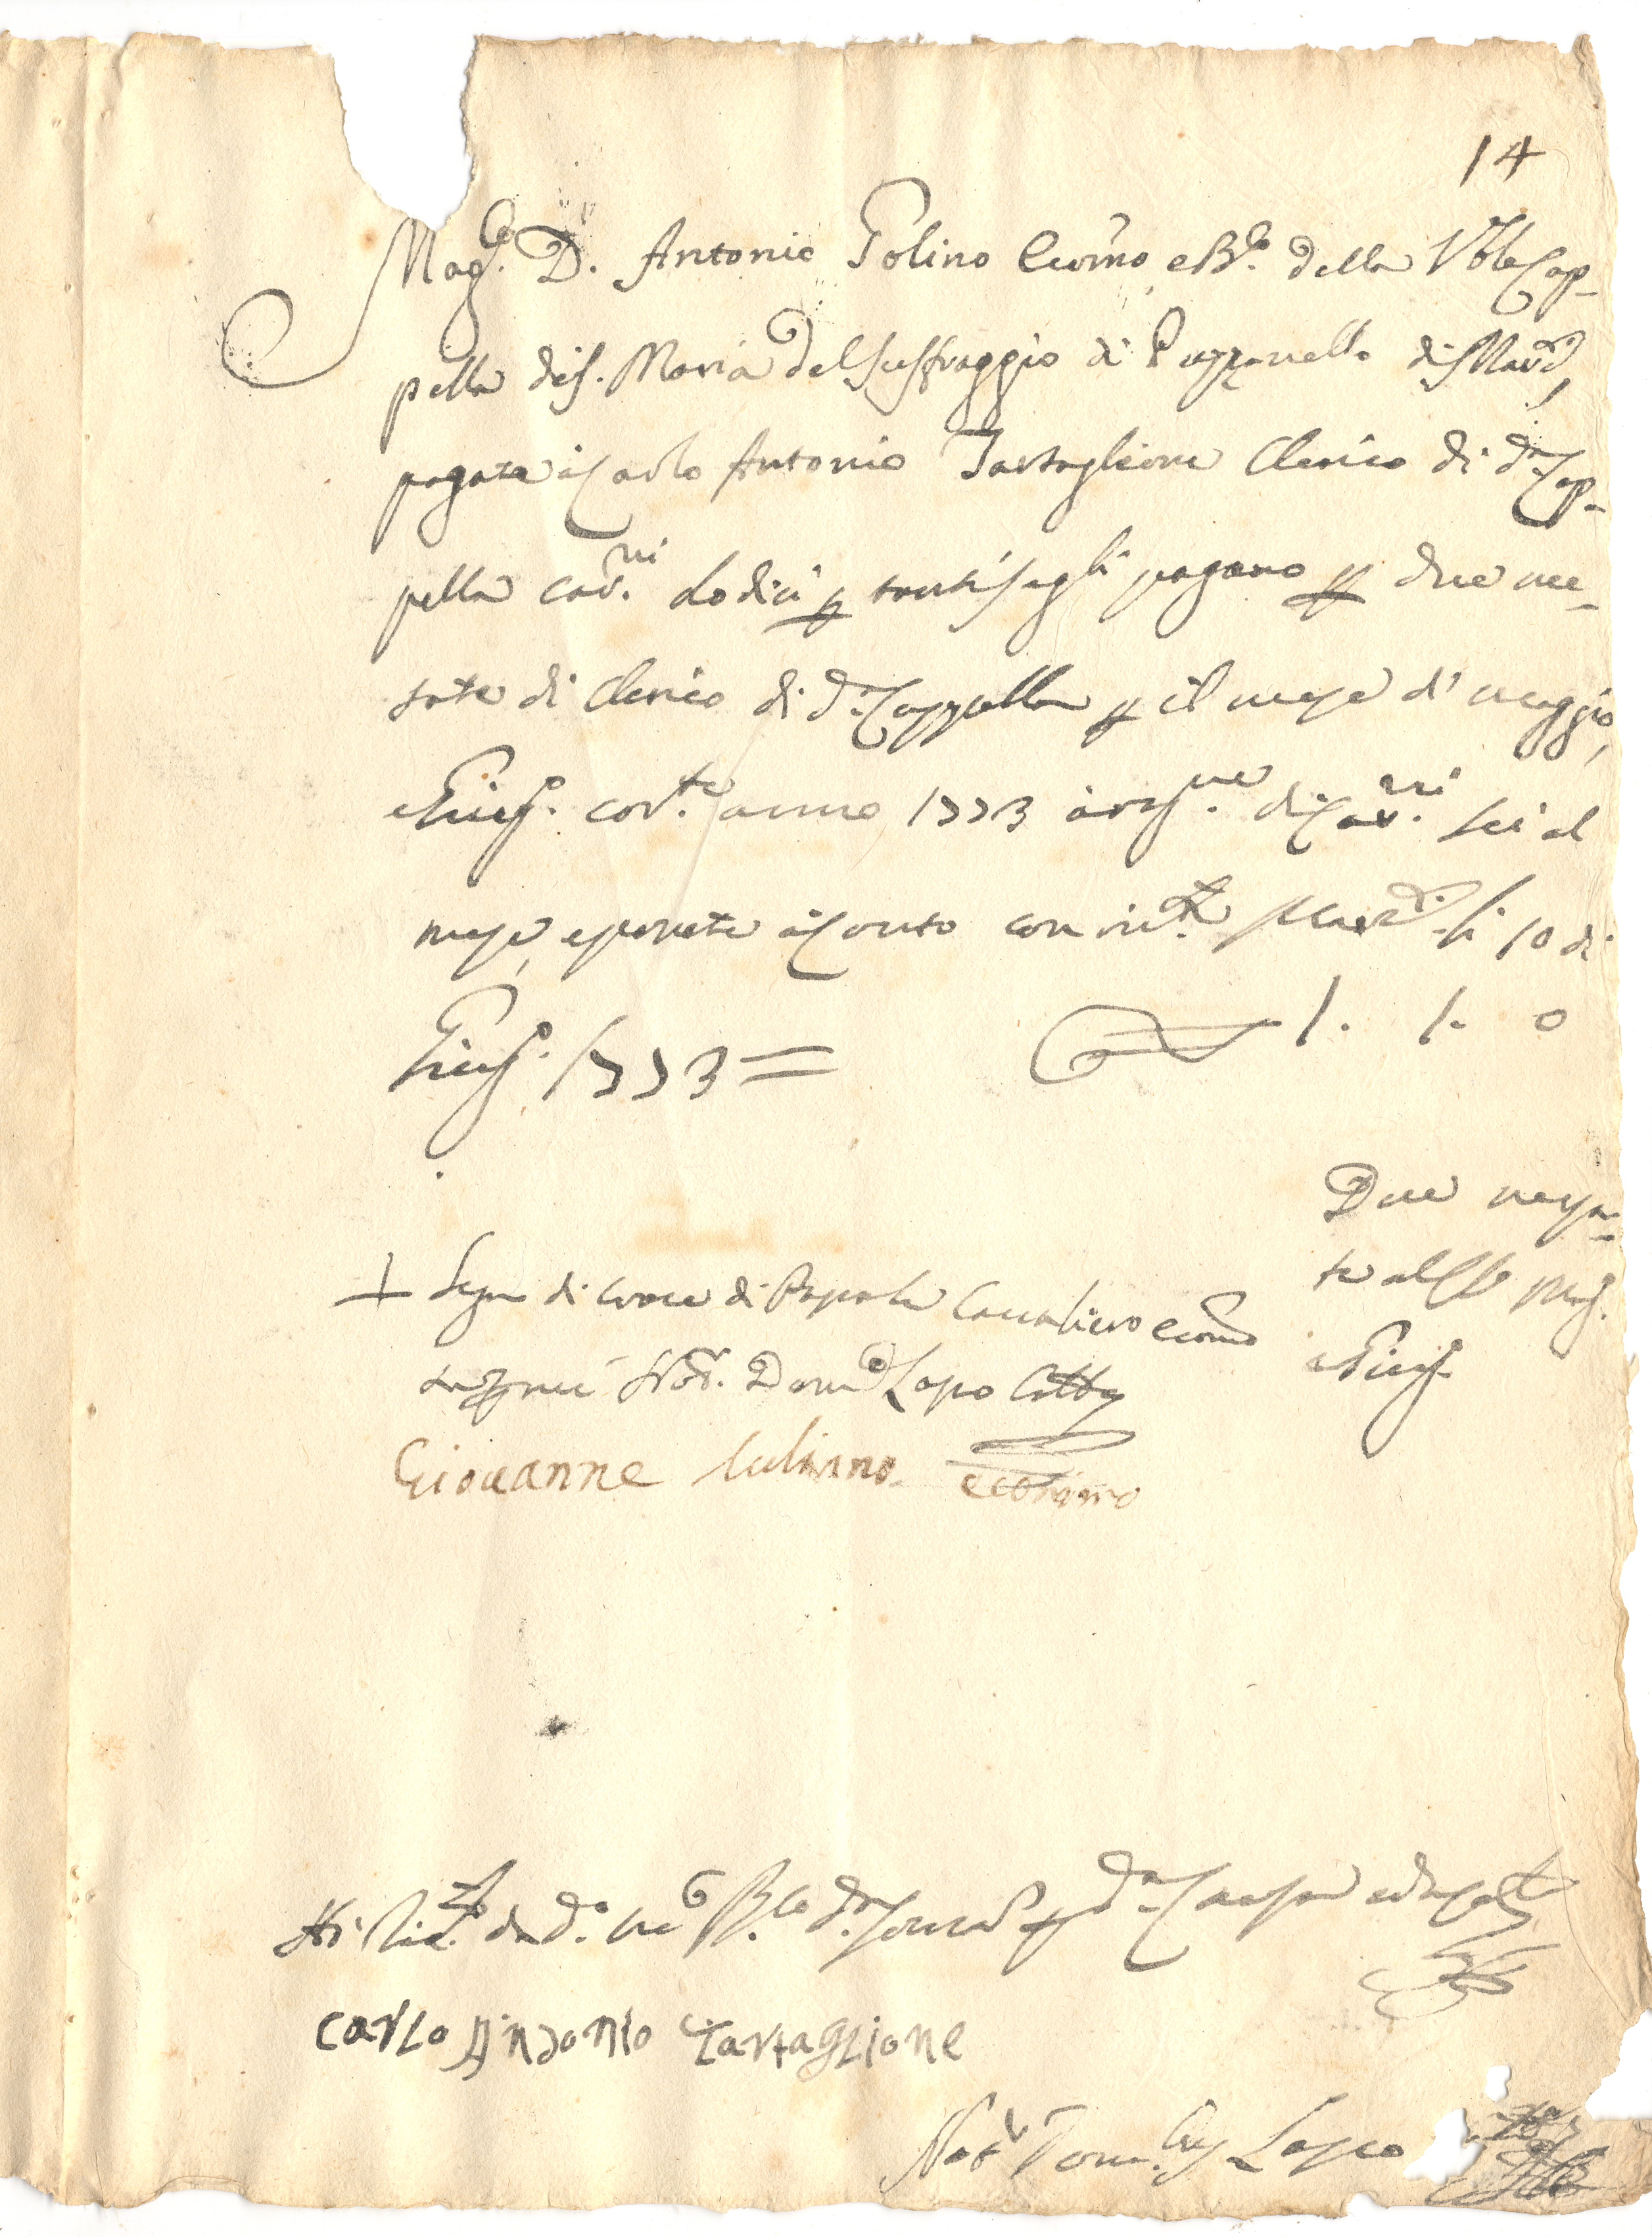 14
Mag.co D. Antonio Golino Econo, e B.o della V.ble Cap-
pella di S. Maria del Suffraggio di Puzzaniello di Mard.e,
pagate à Carlo Antonio Tartaglione Clerico di d.a Cap-
pella car.ni dodici p tanti segli pagano p due me-
sate di Clerico di d.a Cappella p il mese di maggio,
e Giug.o cor.te anno 1773 à rag.ne di Car.ni sei al
mese, e ponete à conto con ric.ta Mard.e li 10 di
Giug.o 1773 = 1. 1. 0
Due mesa-
te allo Mag.
e Giug.o
+ Segno di croce di Pascale Cavaliero econo
Not.r Dom.co Lapo
Giovanne Iuliano economo
Hò ric.to da d.o m.co B.o d.a soma p d.a Causa
Carlo Antonio Tartaglione
Not.r Dom.cus Lapeo